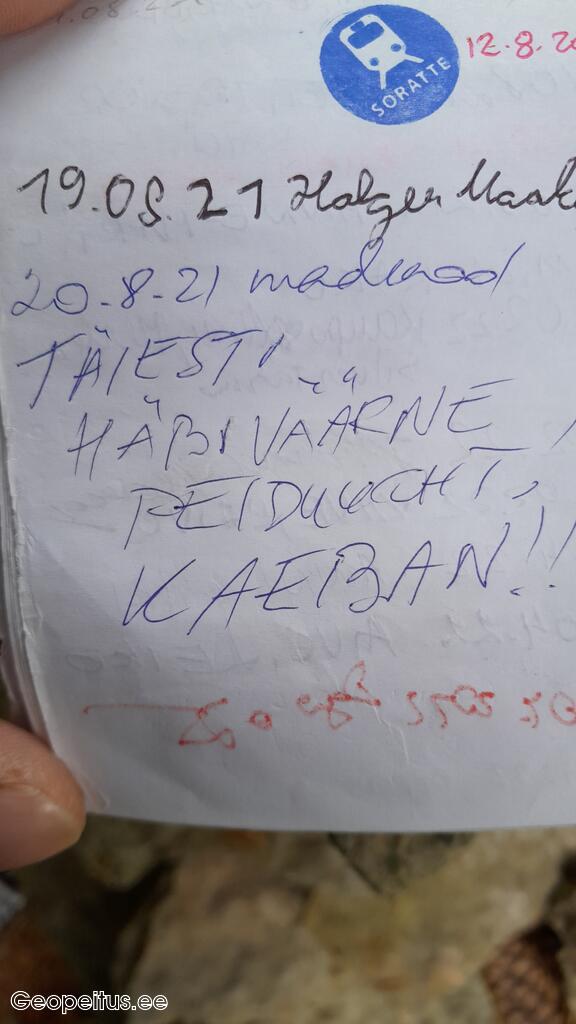 SORATTE
12.8.20
19.08.21 Holger Maak
20.8.21 madkood
TÄIESTI
HÄBIVÄÄRNE,
PEIDUKOHT,
KAEBAN!!
Geopeitus.ee